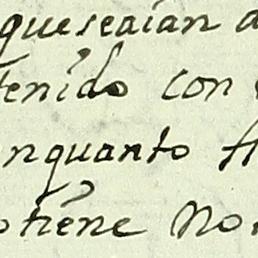 queseaian a
tenido con
nquanto
tiene no